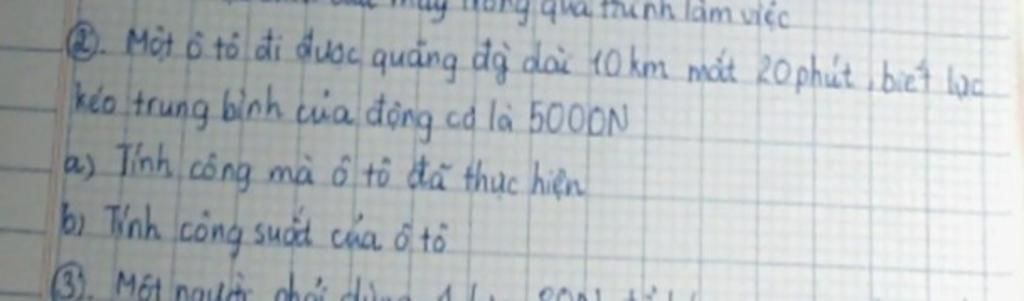 máy trong quá trình làm việc
②. Một ô tô đi được quãng đg dài 10km mất 20phút, biết lực
kéo trung bình của động cơ là 5000N
a) Tính công mà ô tô đã thực hiện
b) Tính công suất của ô tô
③. Một người phải dùng